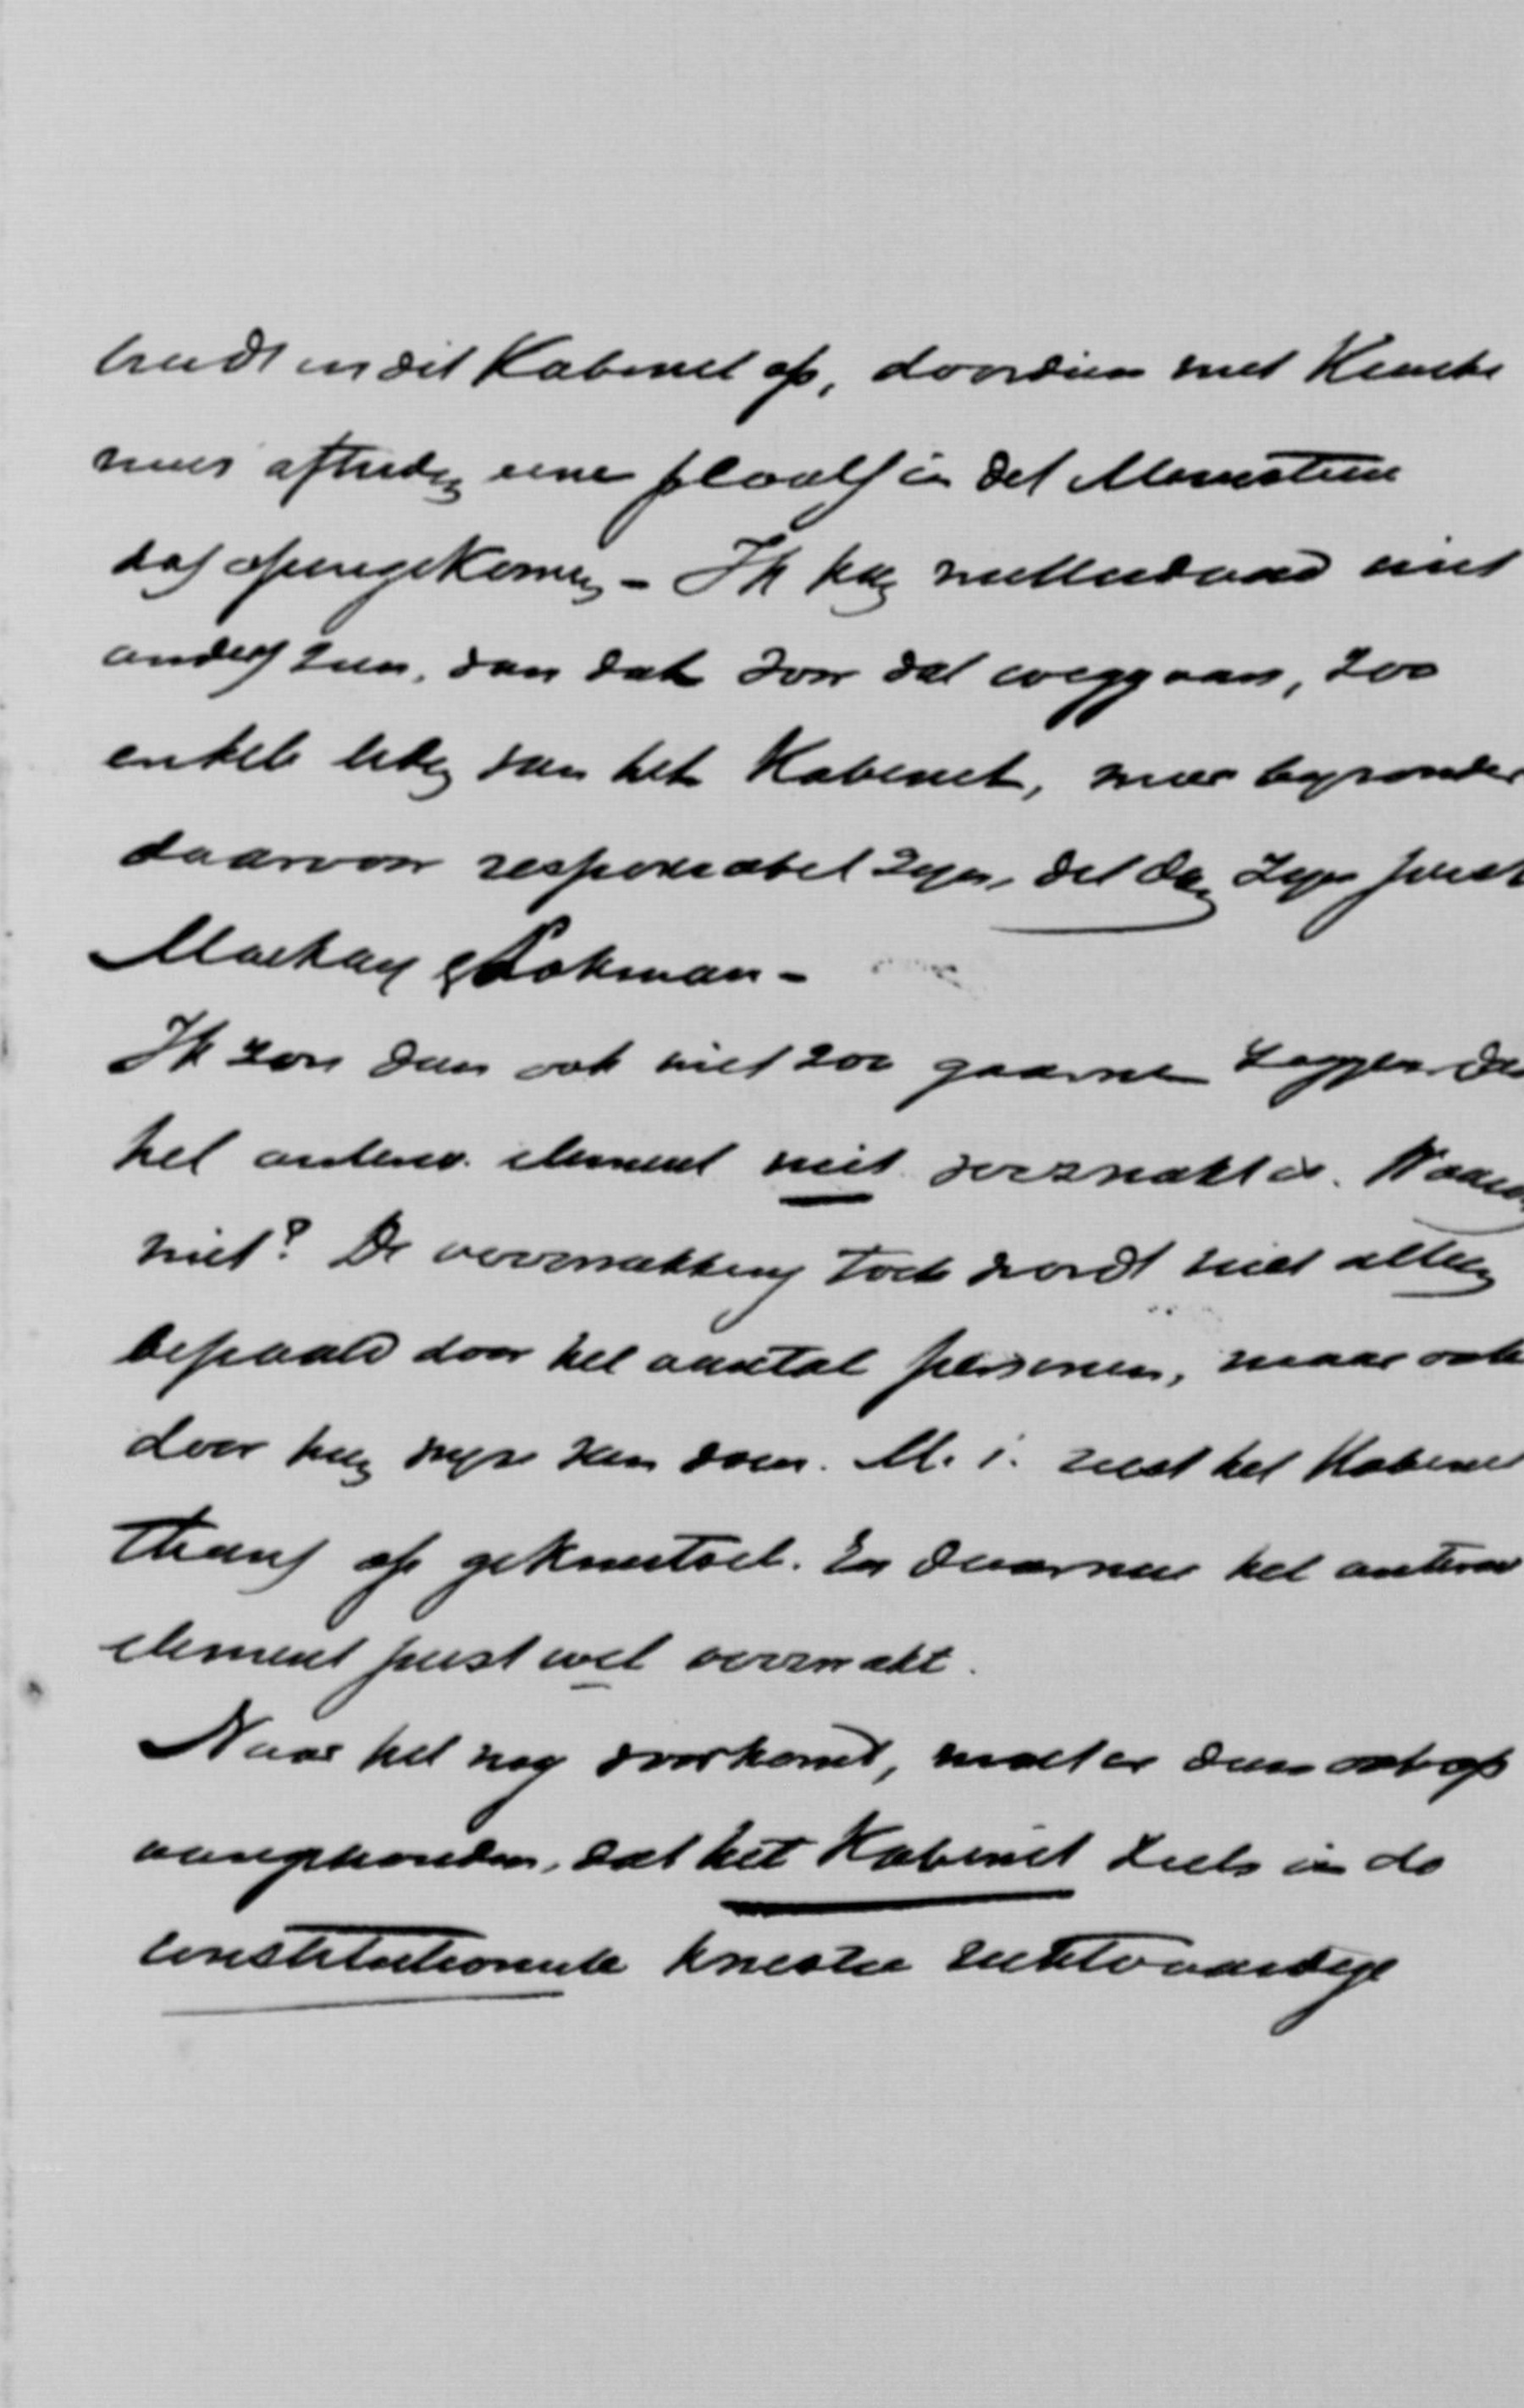 treedt in dit Kabinet op, doordien met Keuche
nius' aftreden eene plaats in dit Ministerie
was opengekomen - Ik kan metterdaad niet
anders zien, dan dat voor dat weggaan, zoo
enkele leden van het Kabinet, meer byzonder
daarvoor responsabel zyn, dit dan zyn juist
Mackay en Lohman -
Ik zou dan ook niet zoo gaarne zeggen da
het antirev. element niet verzwakt is. Waaro
niet? De verzwakking toch wordt niet alleen
bepaald door het aantal personen, maar ook
door hun wyze van doen. M. i. rust het Kabinet
thans op geknutsel. En daarmee het antirev
element juist wel verzwakt.
Naar het my voorkomt, moet er dan ook op
aangehouden, dat het Kabinet zich in de
constitutioneele kwestie rechtvaardige